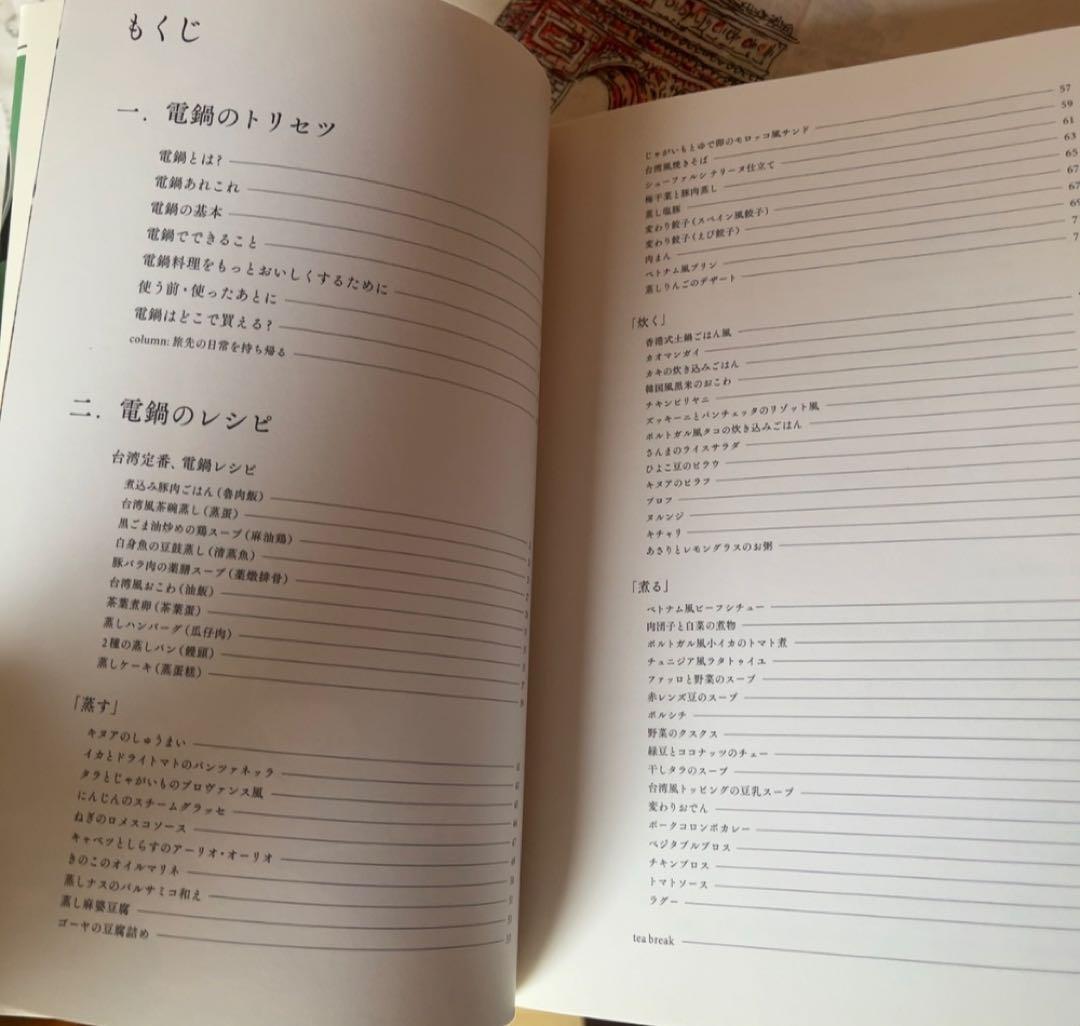 もくじ
一. 電鍋のトリセツ
電鍋とは?
電鍋あれこれ
電鍋の基本
電鍋でできること
電鍋料理をもっとおいしくするために
使う前・使ったあとに
電鍋はどこで買える?
column: 旅先の日常を持ち帰る
二. 電鍋のレシピ
台湾定番、電鍋レシピ
煮込み豚肉ごはん(魯肉飯)
台湾風茶碗蒸し(蒸蛋)
黒ごま油炒めの鶏スープ(麻油鶏)
白身魚の豆鼓蒸し(清蒸魚)
豚バラ肉の薬膳スープ(薬燉排骨)
台湾風おこわ(油飯)
茶葉煮卵(茶葉蛋)
蒸しハンバーグ(瓜仔肉)
2種の蒸しパン(饅頭)
蒸しケーキ(蒸蛋糕)
「蒸す」
キヌアのしゅうまい
イカとドライトマトのパンツァネッラ
タラとじゃがいものプロヴァンス風
にんじんのスチームグラッセ
ねぎのロメスコソース
キャベツとしらすのアーリオ・オーリオ
きのこのオイルマリネ
蒸しナスのバルサミコ和え
蒸し麻婆豆腐
ゴーヤの豆腐詰め
じゃがいもとゆで卵のモロッコ風サンド 57
台湾風焼きそば 59
シューファルシ テリーヌ仕立て 61
梅干菜と豚肉蒸し 63
蒸し塩豚 65
変わり餃子(スペイン風餃子) 67
変わり餃子(えび餃子) 67
肉まん 69
ベトナム風プリン 7
蒸しりんごのデザート 7
「炊く」
香港式土鍋ごはん風
カオマンガイ
カキの炊き込みごはん
韓国風黒米のおこわ
チキンビリヤニ
ズッキーニとパンチェッタのリゾット風
ポルトガル風タコの炊き込みごはん
さんまのライスサラダ
ひよこ豆のピラウ
キヌアのピラフ
プロフ
ヌルンジ
キチャリ
あさりとレモングラスのお粥
「煮る」
ベトナム風ビーフシチュー
肉団子と白菜の煮物
ポルトガル風小イカのトマト煮
チュニジア風ラタトゥイユ
ファッロと野菜のスープ
赤レンズ豆のスープ
ボルシチ
野菜のクスクス
緑豆とココナッツのチェー
干しタラのスープ
台湾風トッピングの豆乳スープ
変わりおでん
ポークコロンボカレー
ベジタブルブロス
チキンブロス
トマトソース
ラグー
tea break